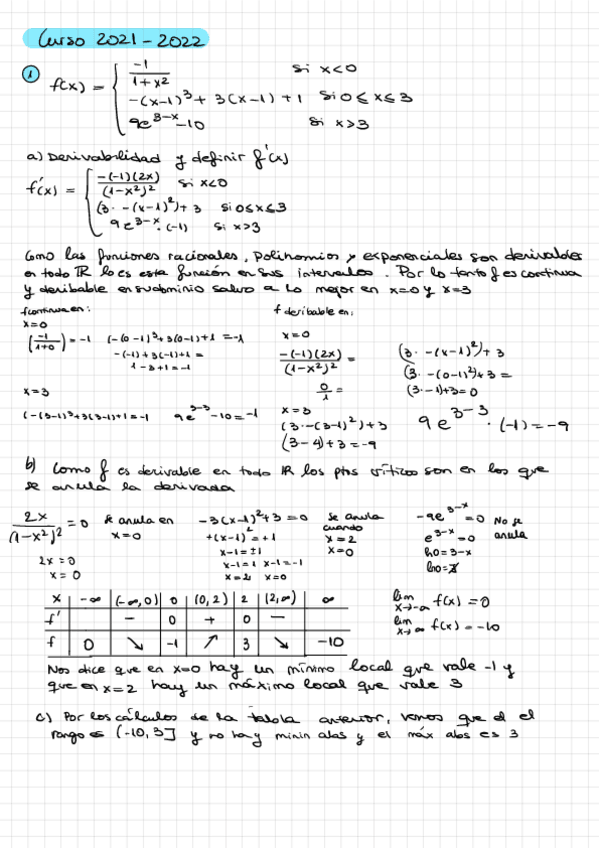 Curso 2021-2022
① f(x) = { -1/(1+x²) si x<0
-(x-1)³ + 3(x-1) + 1 si 0 ≤ x ≤ 3
9e^(3-x) - 10 si x>3
a) Derivabilidad y definir f'(x)
f'(x) = { -(-1)(2x)/(1-x²)² si x<0
(3·-(x-1)²)+3 si 0≤x≤3
9e^(3-x)·(-1) si x>3
Como las funciones racionales, polinomios y exponenciales son derivables
en todo IR lo es esta función en sus intervalos. Por lo tanto f es continua
y deribable en su dominio salvo a lo mejor en x=0 y x=3
f continua en: f deribable en:
x=0 x=0
(-1/(1+0)) = -1 (-(0-1)³+3(0-1)+1 = -1
-(-1)+3(-1)+1 =
1-3+1 = -1
-(-1)(2x)/(1-x²)² = (3·-(x-1)²)+3
0/1 = (3·-(0-1)²)+3 =
(3·-1)+3 = 0
x=3 x=3
(-(3-1)³+3(3-1)+1 = -1 9e^(3-3) -10 = -1
(3·-(3-1)²)+3 9e^(3-3)·(-1) = -9
(3-4)+3 = -9
b) Como f es derivable en todo IR los ptos críticos son en los que
se anula la derivada
2x/(1-x²)² = 0 se anula en x=0
2x=0
x=0
-3(x-1)²+3=0 se anula cuando x=2 x=0
+(x-1)² = +1
x-1 = ±1
x-1=1 x-1=-1
x=2 x=0
-9e^(3-x) = 0 No se anula
e^(3-x) = 0
ln0 = 3-x
x | -∞ | (-∞,0) | 0 | (0,2) | 2 | (2,∞) | ∞
f' | | - | 0 | + | 0 | - |
f | 0 | ↘ | -1 | ↗ | 3 | ↘ | -10
lim x→-∞ f(x) = 0
lim x→∞ f(x) = -10
Nos dice que en x=0 hay un mínimo local que vale -1 y
que en x=2 hay un máximo local que vale 3
c) Por los cálculos de la tabla anterior, vemos que el
rango es (-10,3] y no hay minin abs y el máx abs es 3